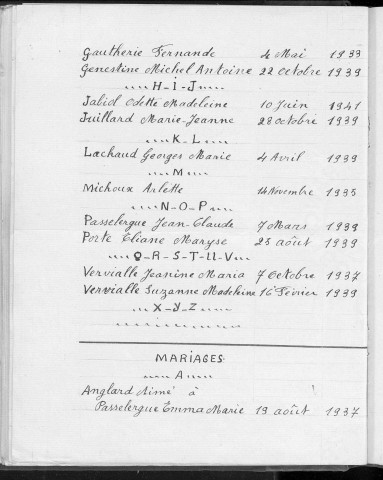 Gautherie Fernande 4 Mai 1933
Genestine Michel Antoine 22 Octobre 1939
....H-I-J....
Jabiol Odette Madeleine 10 Juin 1941
Juillard Marie-Jeanne 28 octobre 1939
....K-L....
Lachaud Georges Marie 4 Avril 1939
....M....
Michoux Arlette 14 Novembre 1935
....N-O-P....
Passelergue Jean-Claude 7 Mars 1939
Porte Eliane Maryse 25 août 1939
....Q-R-S-T-U-V....
Vervialle Jeanine Maria 7 Octobre 1937
Vervialle Suzanne Madeleine 16 Février 1939
....X-Y-Z....
MARIAGES
....A....
Anglard Aimé à
Passelergue Emma Marie 19 août 1937